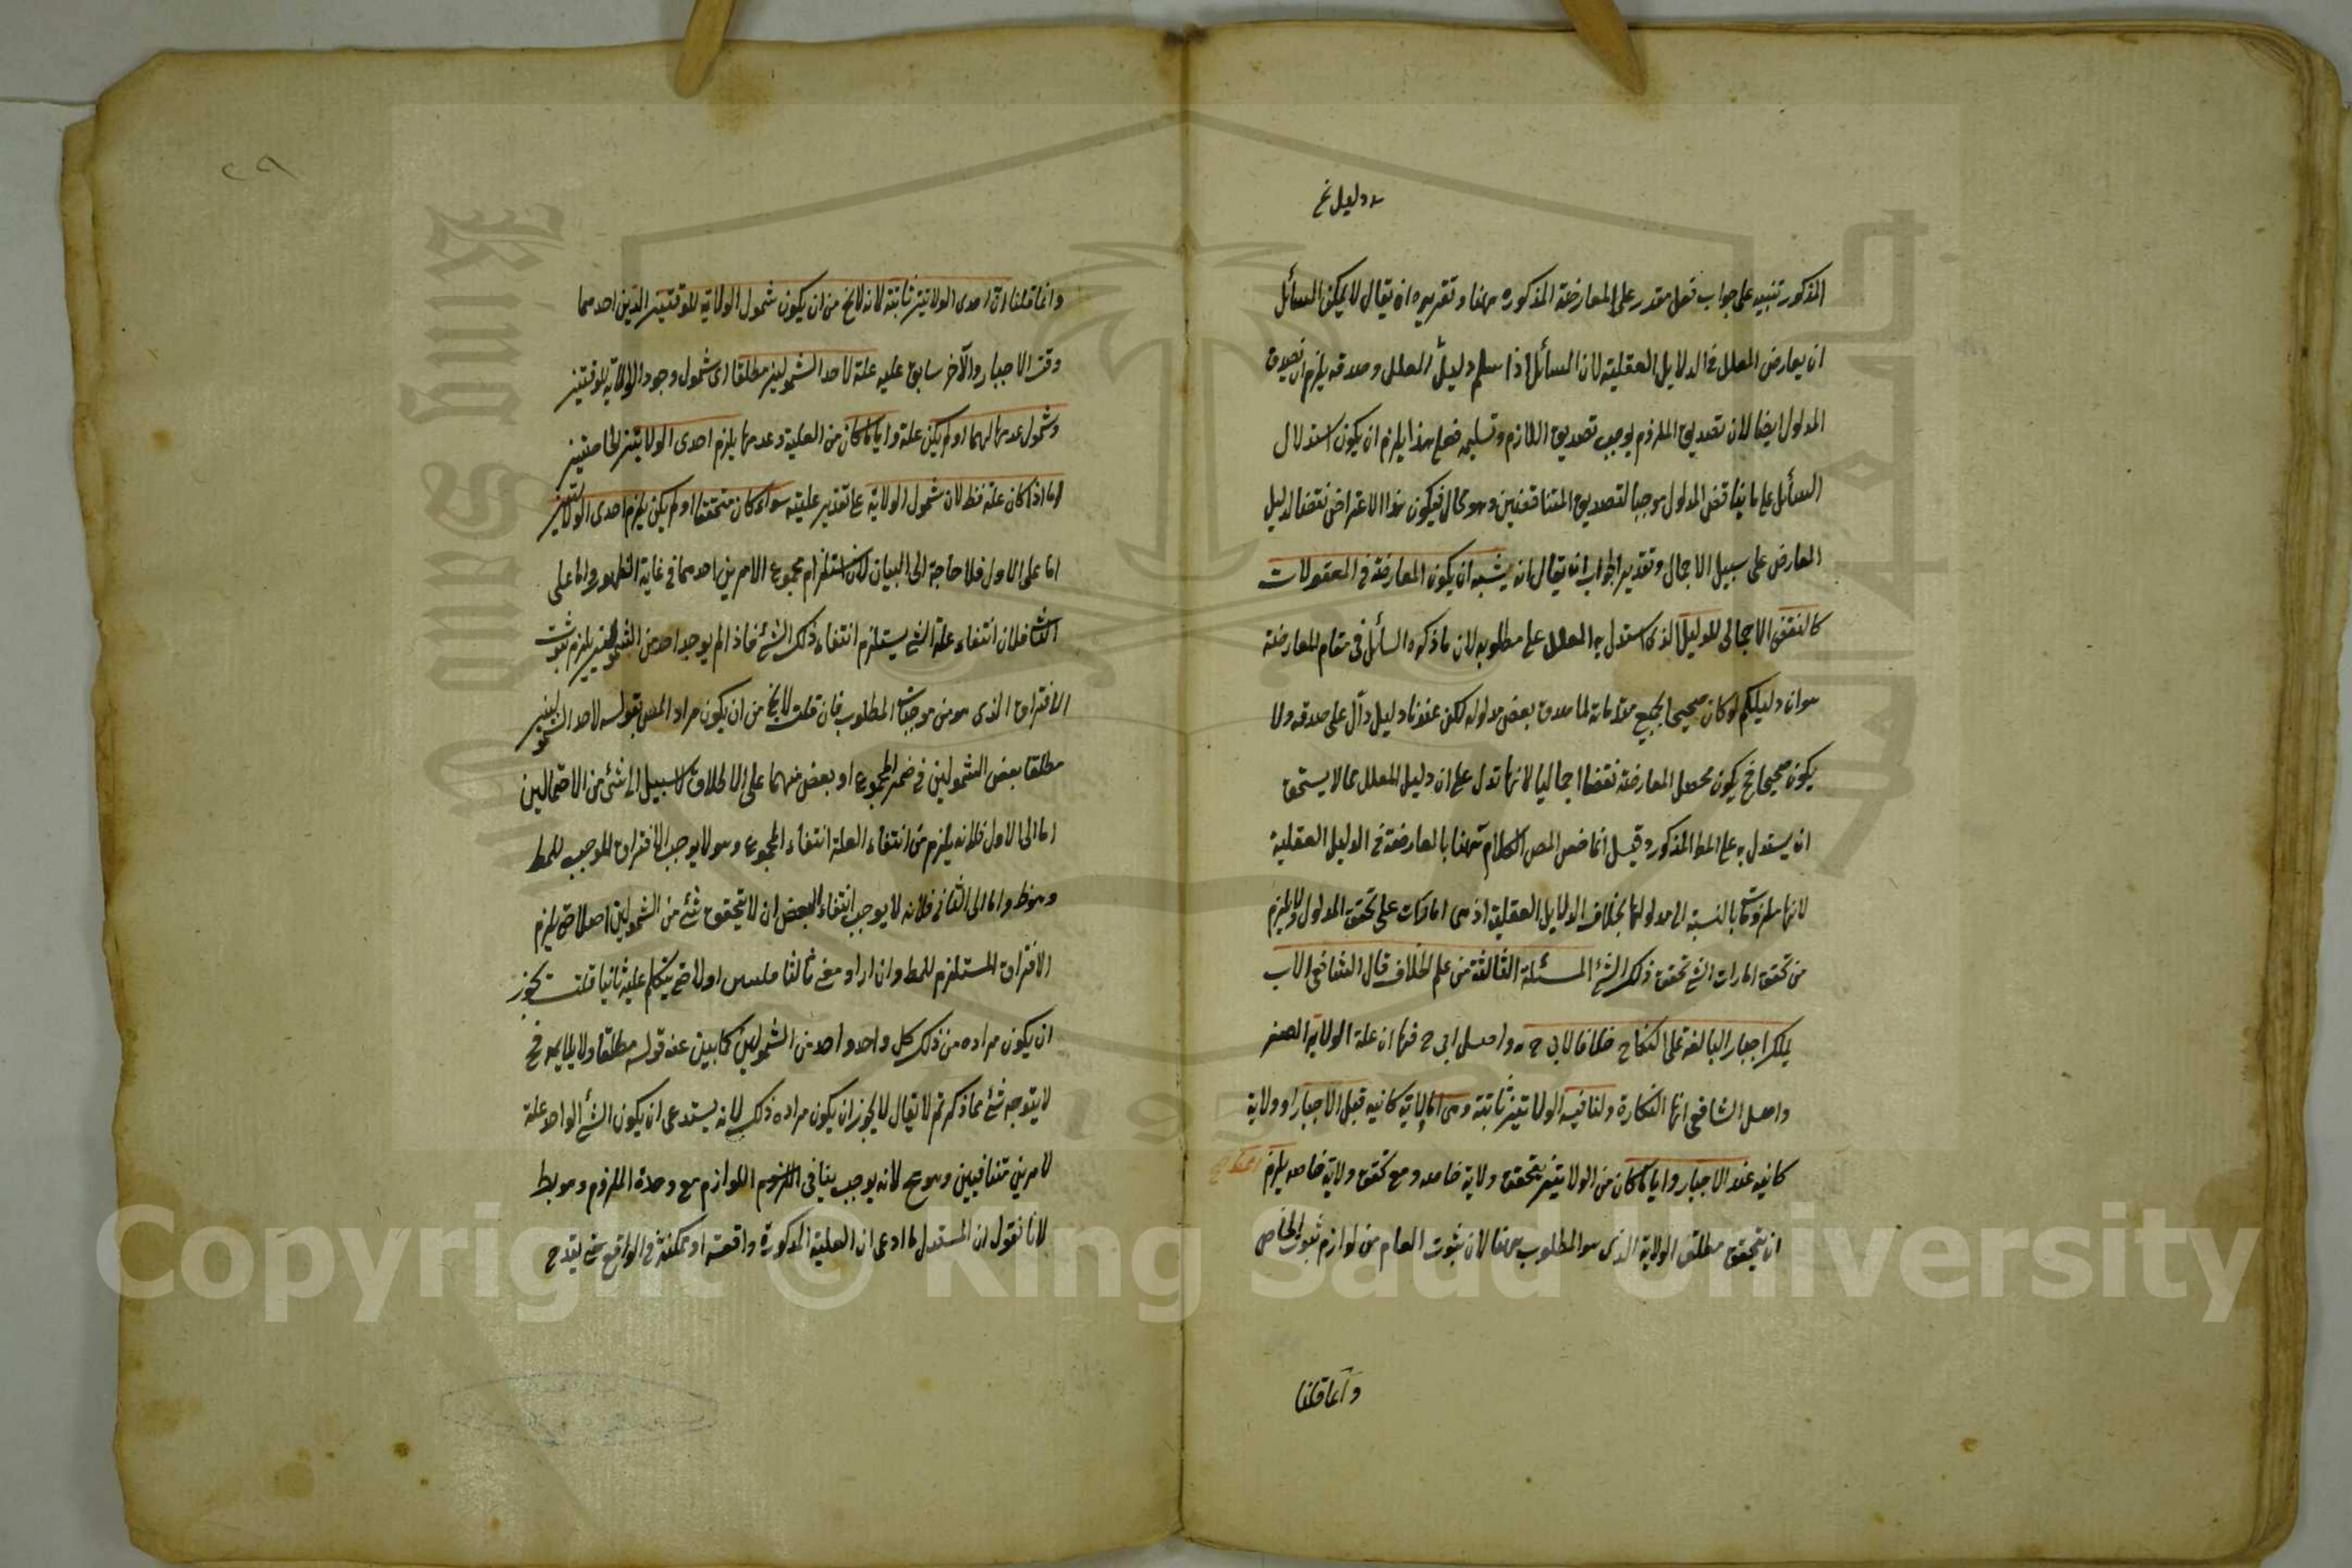 دليل نخ
المذكور تنبيه على جواب دخل مقدر على المعارضة المذكورة ههنا وتقريره ان يقال لا يمكن السائل
ان يعارض المعلل في الدلايل العقلية لان السائل اذا سلم دليل المعلل وصدقه يلزم ان يصدق
المدلول ايضا لان تصديق الملزوم يوجب تصديق اللازم وتسليمه فعلى هذا يلزم ان يكون استدلال
السائل على ما يناقض المدلول موجبا لتصديق المتناقضين وهو محال فيكون هذا الاعتراض نقضا لدليل
المعارض على سبيل الاجمال وتقدير الجواب ان يقال انه يشبه ان يكون المعارضة في المعقولات
كالنقض الاجمالى للدليل الذى استدل به المعلل على مطلوبه لان ما ذكره السائل في مقام المعارضة
هو ان دليلكم لو كان صحيحا بجميع مقدماته لما صدق بعض مدلوله لكن عندنا دليل دال على صدقه ولا
يكون صحيحا فح يكون محصل المعارضة نقضا اجماليا لانها تدل على ان دليل المعلل مما لا يستحق
ان يستدل به على المط المذكور وقيل انما خص المص الكلام ههنا بالمعارضة في الدليل العقلية
لانها ملزومات بالنسبة الى مدلولها بخلاف الدلايل العقلية اذ هى امارات على تحقق المدلول ولا يلزم
من تحقق امارات الشئ تحقق ذلك الشئ المسئلة الثالثة من علم الخلاف قال الشافعى الاب
يملك اجبار البالغة على النكاح خلافا لابى ح ره واصل ابى ح فيها ان علة الولاية الصغر
واصل الشافعى انها البكارة ولنا فيه الولايتين ثابتة وهى اما ولاية كانيه قبل الاجبار او ولاية
كانيه عند الاجبار وايا ما كان من الولايتين يتحقق ولاية خاصه ومع تحقق ولاية خاصه يلزم
ان يتحقق مطلق الولاية الذى هو المطلوب ههنا لان ثبوت العام من لوازم ثبوت الخاص
وانما قلنا
٢٩
وانما قلنا ان احدى الولايتين ثابتة لانه لا يخ من ان يكون شمول الولاية للوقتين الذين احدهما
وقت الاجبار والآخر سابق عليه علة لاحد الشمولين مطلقا اى شمول وجود الولاية للوقتين
وشمول عدمها لهما او لم يكن علة وايا ما كان من العلية وعدمها يلزم احدى الولايتين الخاصتين
اما اذا كان علة فظ لان شمول الولاية على تقدير عليته سواء كان متحققا او لم يكن يلزم احدى الولايتين
اما على الاول فلا حاجة الى البيان لان استلزام مجموع الامرين احدهما في غاية الظهور واما على
الثانى فلان انتفاء علة الشئ يستلزم انتفاء ذلك الشئ فاذا لم يوجد احد من الشمولين يلزم ثبوت
الافتراق الذى هو من موجبات المطلوب فان قلت لا يخ من ان يكون مراد المص بقوله لاحد الشمولين
مطلقا بعض الشمولين في ضمن المجموع او بعض منهما على الاطلاق لا سبيل الى شئ من الاحتمالين
اما الى الاول فلانه يلزم من انتفاء العلة انتفاء المجموع وهو لا يوجب الافتراق الموجب للمط
وهو ظ واما الى الثانى فلانه لا يوجب انتفاء البعض ان لا يتحقق شئ من الشمولين اصلا حتى يلزم
الافتراق المستلزم للمط وان اراد معنى ثالثا فليبين اولا حتى يتكلم عليه ثانيا قلت يجوز
ان يكون مراده من ذلك كل واحد واحد من الشمولين كما يبين عنه قوله مطلقا ولا يلايمه فح
لا يتوجه شئ مما ذكرتم لا يقال لا يجوز ان يكون مراده ذلك لانه يستدعى ان يكون الشئ الواحد علة
لامرين متنافيين وهو مح لانه يوجب تنافى اللوازم مع وحدة الملزوم وهو بط
لانا نقول ان المستدل ما ادعى ان العلية المذكورة واقعة او ممكنة في الواقع حتى يقدح
Copyright © King Saud University
King Saud University
1957